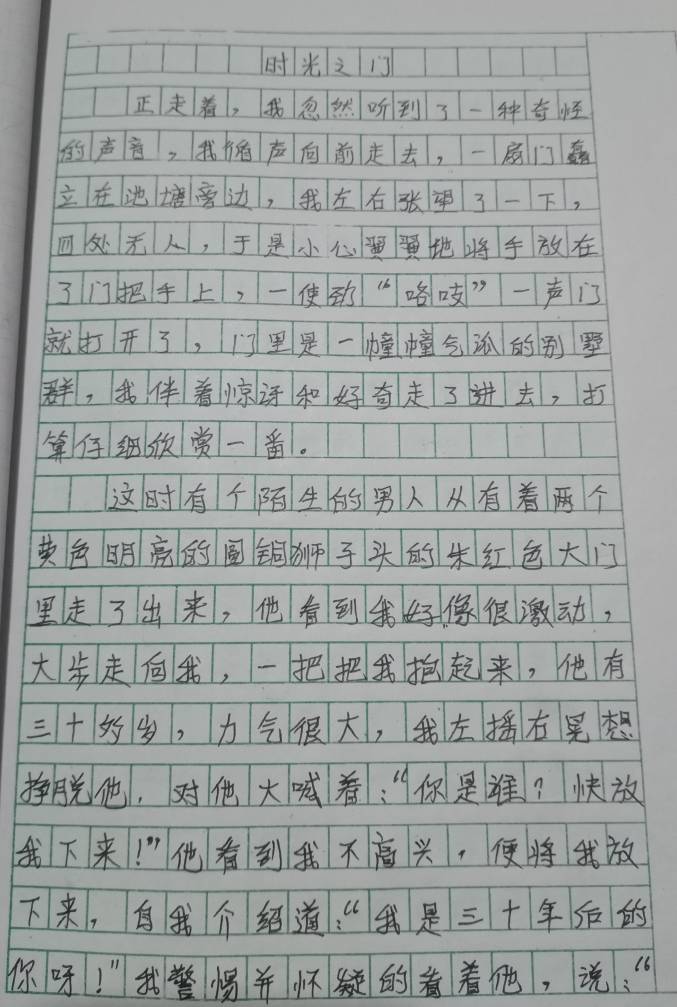 时光之门
正走着，我忽然听到了一种奇怪
的声音，我循声向前走去，一扇门矗
立在池塘旁边，我左右张望了一下，
四处无人，于是小心翼翼地将手放在
了门把手上，一使劲“咯吱”一声门
就打开了，门里是一幢幢气派的别墅
群，我伴着惊讶和好奇走了进去，打
算仔细欣赏一番。
这时有个陌生的男人从有着两个
黄色明亮的圆铜狮子头的朱红色大门
里走了出来，他看到我好像很激动，
大步走向我，一把把我抱起来，他有
三十多岁，力气很大，我左摇右晃想
挣脱他，对他大喊着：“你是谁？快放
我下来！”他看到我不高兴，便将我放
下来，自我介绍道：“我是三十年后的
你呀！”我警惕并怀疑的看着他，说：“